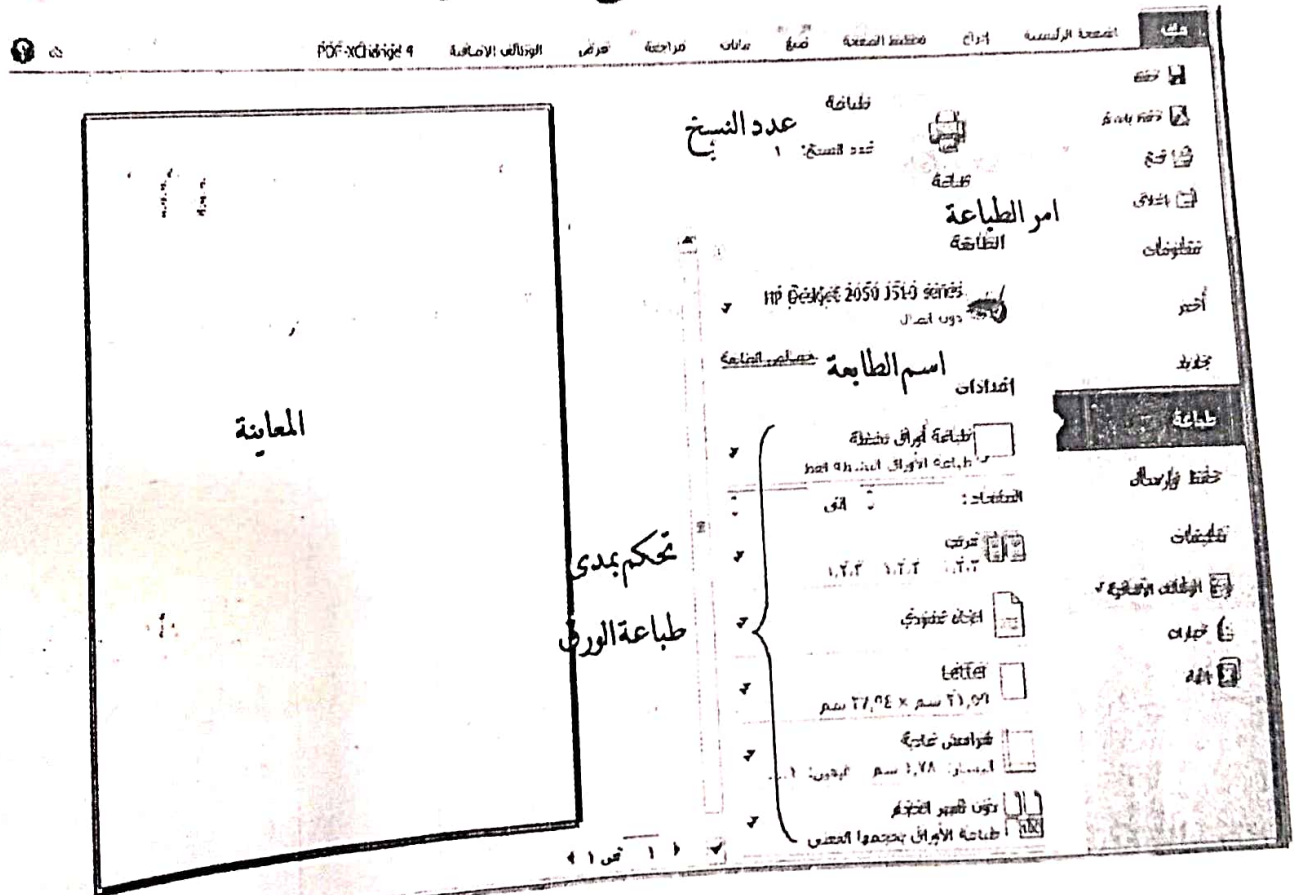 ملف الصفحة الرئيسية إدراج تخطيط الصفحة صيغ بيانات مراجعة عرض الوظائف الإضافية PDF-XChange 4
حفظ
حفظ باسم
فتح
إغلاق
معلومات
أخير
جديد
طباعة
حفظ وإرسال
تعليمات
الوظائف الإضافية
خيارات
إنهاء
طباعة
عدد النسخ: ١
عدد النسخ
طباعة
امر الطباعة
الطابعة
HP Deskjet 2050 J510 series
دون اتصال
خصائص الطابعة
اسم الطابعة
إعدادات
طباعة أوراق نشطة
طباعة الأوراق النشطة فقط
الصفحات: إلى
ترتيب
١،٢،٣ ١،٢،٣ ١،٢،٣
اتجاه عمودي
Letter
٢١,٥٩ سم × ٢٧,٩٤ سم
هوامش عادية
اليسار: ١,٧٨ سم اليمين: ١...
دون تغيير الحجم
طباعة الأوراق بحجمها الفعلي
تحكم بمدى
طباعة الورق
المعاينة
١ من ١